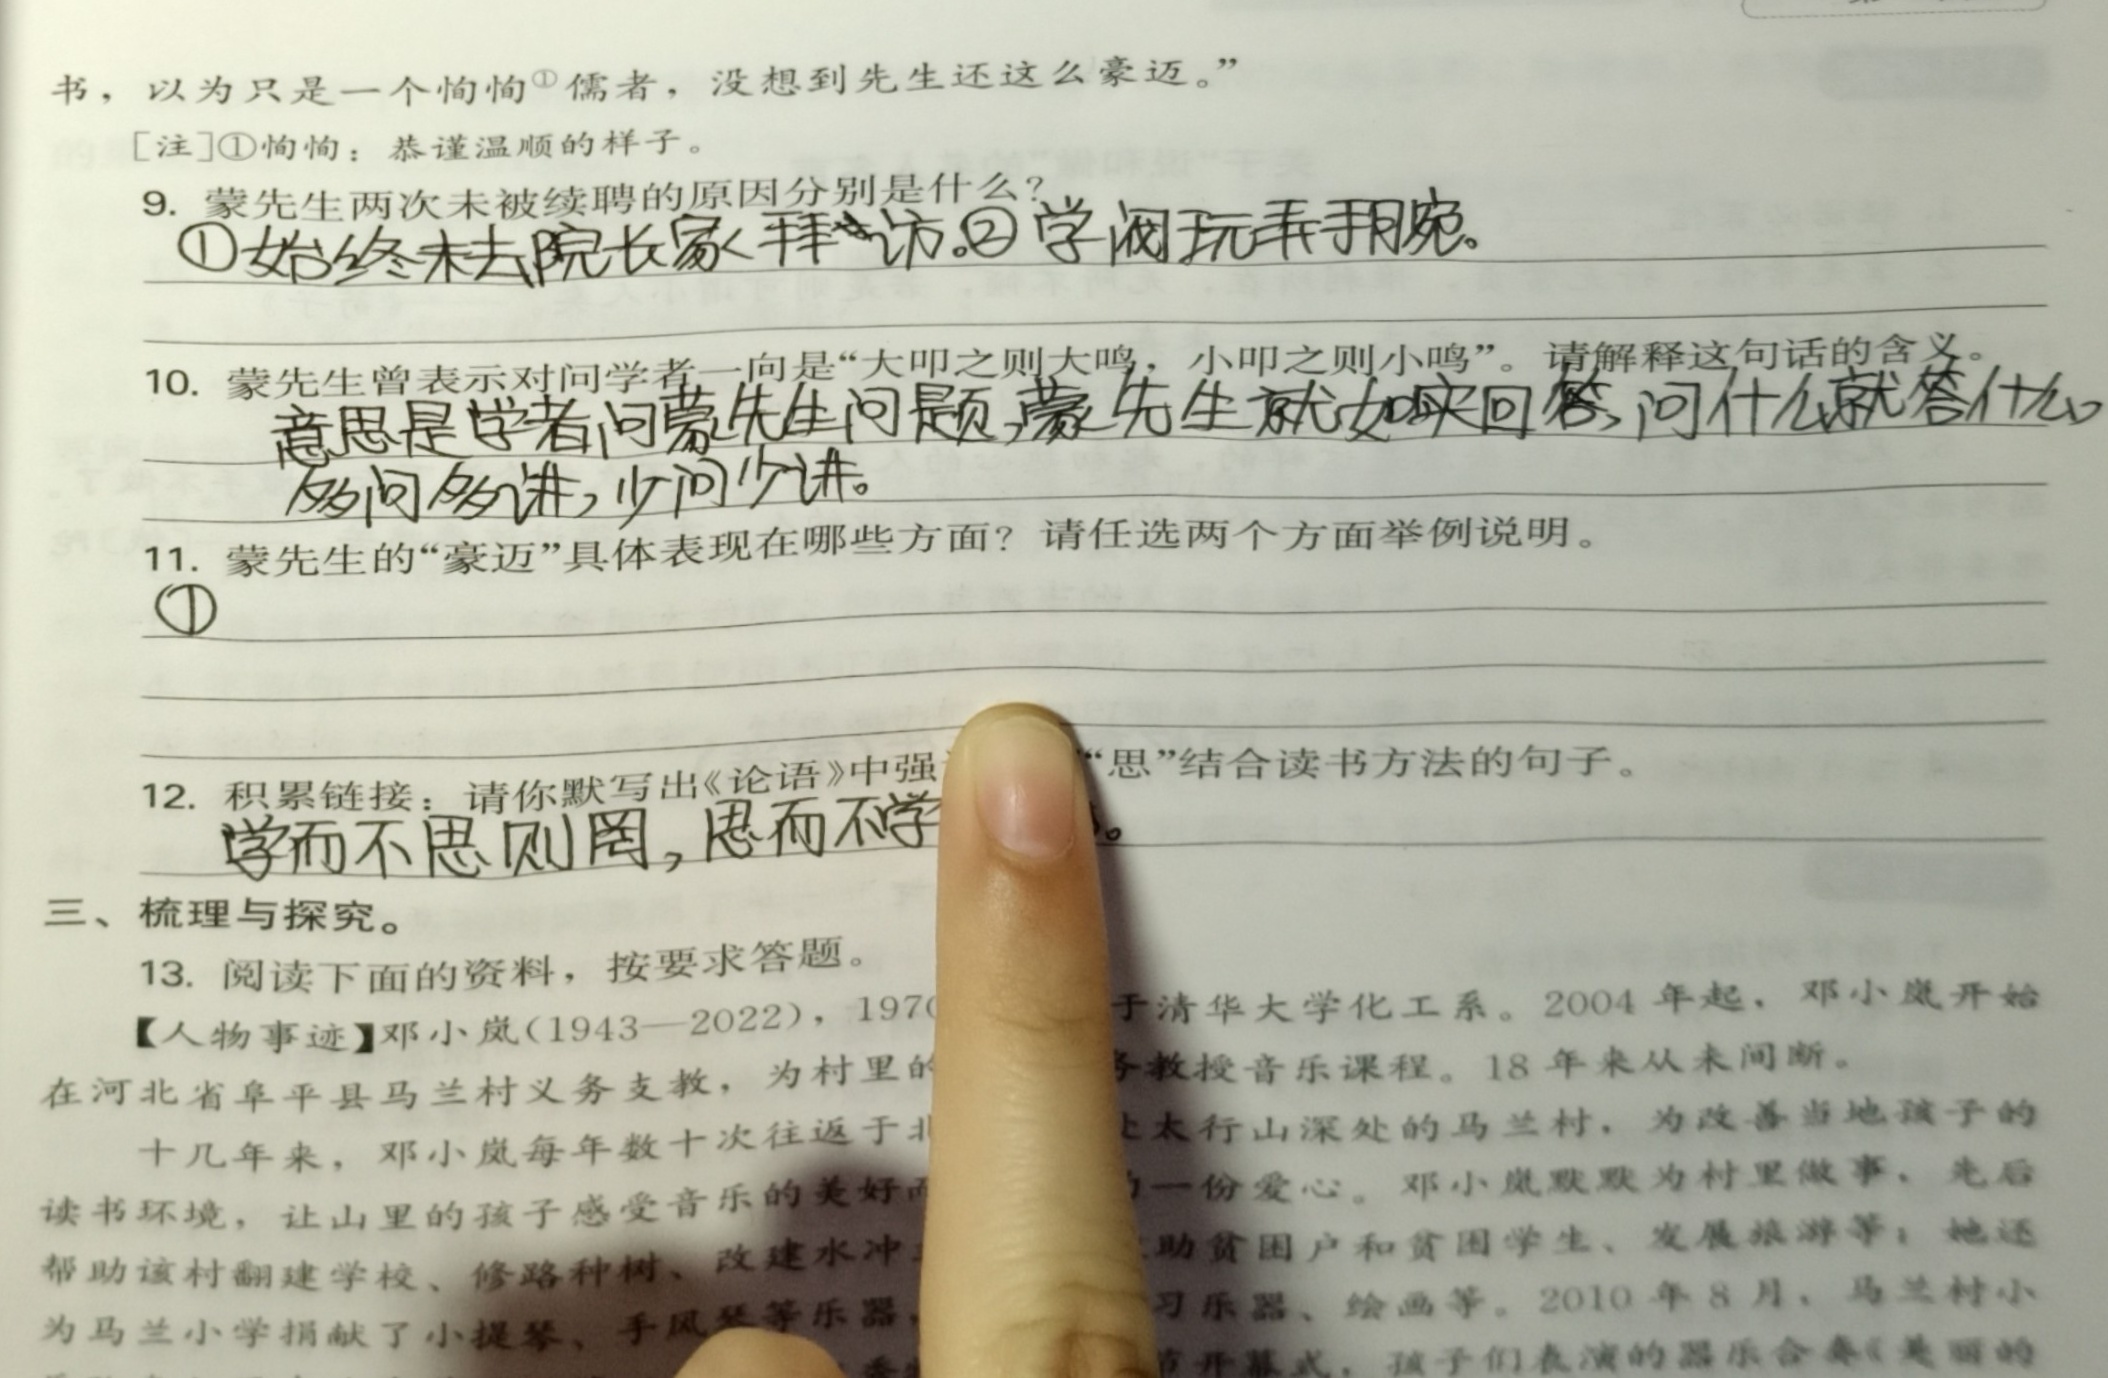 书，以为只是一个恂恂①儒者，没想到先生还这么豪迈。”
[注]①恂恂：恭谨温顺的样子。
9. 蒙先生两次未被续聘的原因分别是什么？
①始终未去院长家拜访。②学阀玩弄手腕。
10. 蒙先生曾表示对问学者一向是“大叩之则大鸣，小叩之则小鸣”。请解释这句话的含义。
意思是学者问蒙先生问题，蒙先生就如实回答，问什么就答什么。
多问多讲，少问少讲。
11. 蒙先生的“豪迈”具体表现在哪些方面？请任选两个方面举例说明。
①
12. 积累链接：请你默写出《论语》中强 “思”结合读书方法的句子。
学而不思则罔，思而不学 。
三、梳理与探究。
13. 阅读下面的资料，按要求答题。
【人物事迹】邓小岚(1943—2022)，1970 于清华大学化工系。2004 年起，邓小岚开始
在河北省阜平县马兰村义务支教，为村里的 务教授音乐课程。18 年来从未间断。
十几年来，邓小岚每年数十次往返于北 太行山深处的马兰村，为改善当地孩子的
读书环境，让山里的孩子感受音乐的美好而 一份爱心。邓小岚默默为村里做事，先后
帮助该村翻建学校、修路种树、改建水冲 助贫困户和贫困学生、发展旅游等；她还
为马兰小学捐献了小提琴、手风琴等乐器， 习乐器、绘画等。2010 年 8 月，马兰村小
开幕式，孩子们表演的器乐合奏《美丽的